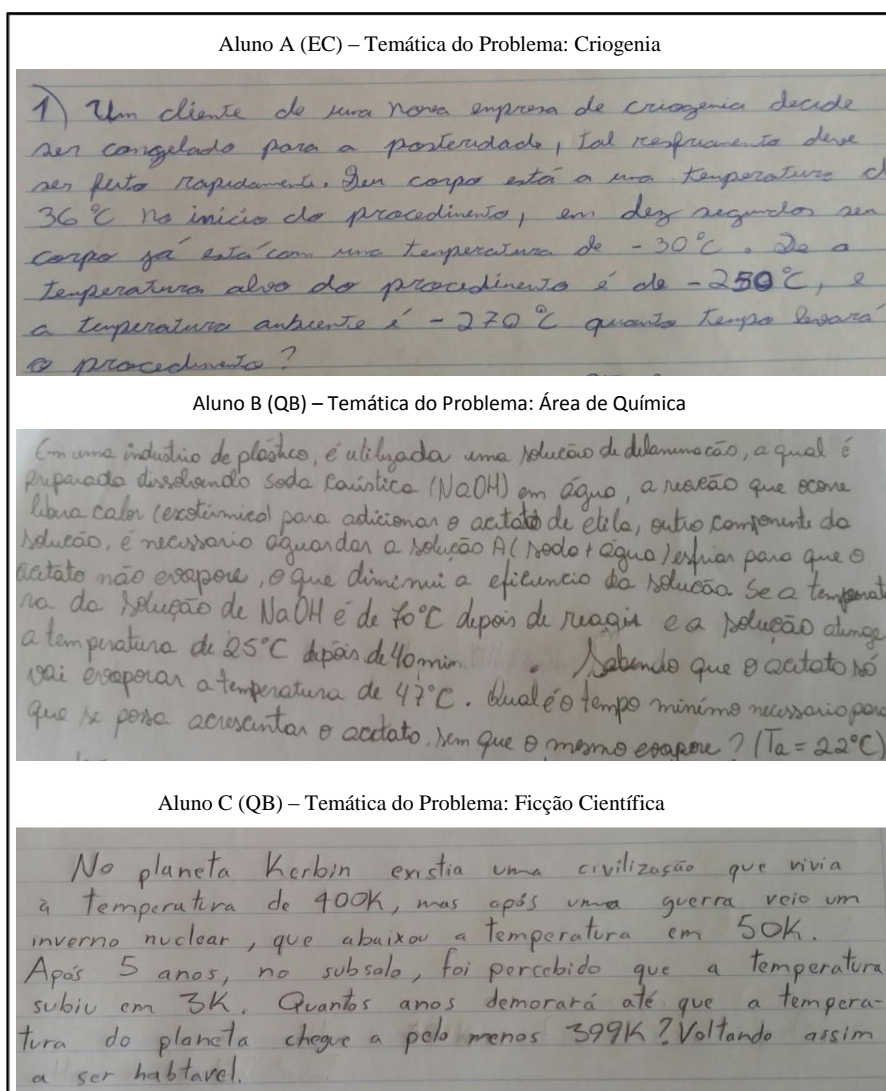 Aluno A (EC) – Temática do Problema: Criogenia
1) Um cliente de uma nova empresa de criogenia decide
ser congelado para a posteridade, tal resfriamento deve
ser feito rapidamente. Seu corpo está a uma temperatura d
36 °C no início do procedimento, em dez segundos seu
corpo já está com uma temperatura de -30°C. Se a
temperatura alvo do procedimento é de -250°C, e
a temperatura ambiente é -270 °C quanto tempo levará
o procedimento?
Aluno B (QB) – Temática do Problema: Área de Química
Em uma industria de plástico, é utilizada uma solucão de delaminacão, a qual é
preparada dissolvendo soda caústica (NaOH) em água, a reacão que ocorre
libera calor (exotérmica) para adicionar o acetato de etila, outro componente da
solucão, é necessario aguardar a solucão A (soda + água) esfriar para que o
acetato não evapore, o que diminui a eficiencia da solucão Se a temperat
ra da solução de NaOH é de 70°C depois de reagir e a solução atinge
a temperatura de 25°C depois de 40 min. Sabendo que o acetato só
vai evaporar a temperatura de 47°C. Qual é o tempo minímo necessario para
que se possa acrescentar o acetato, sem que o mesmo evapore? (Ta = 22°C)
Aluno C (QB) – Temática do Problema: Ficção Científica
No planeta Kerbin existia uma civilização que vivia
à temperatura de 400K, mas após uma guerra veio um
inverno nuclear, que abaixou a temperatura em 50K.
Após 5 anos, no subsolo, foi percebido que a temperatura
subiu em 3K. Quantos anos demorará até que a tempera-
tura do planeta chegue a pelo menos 399K? Voltando assim
a ser habtavel.